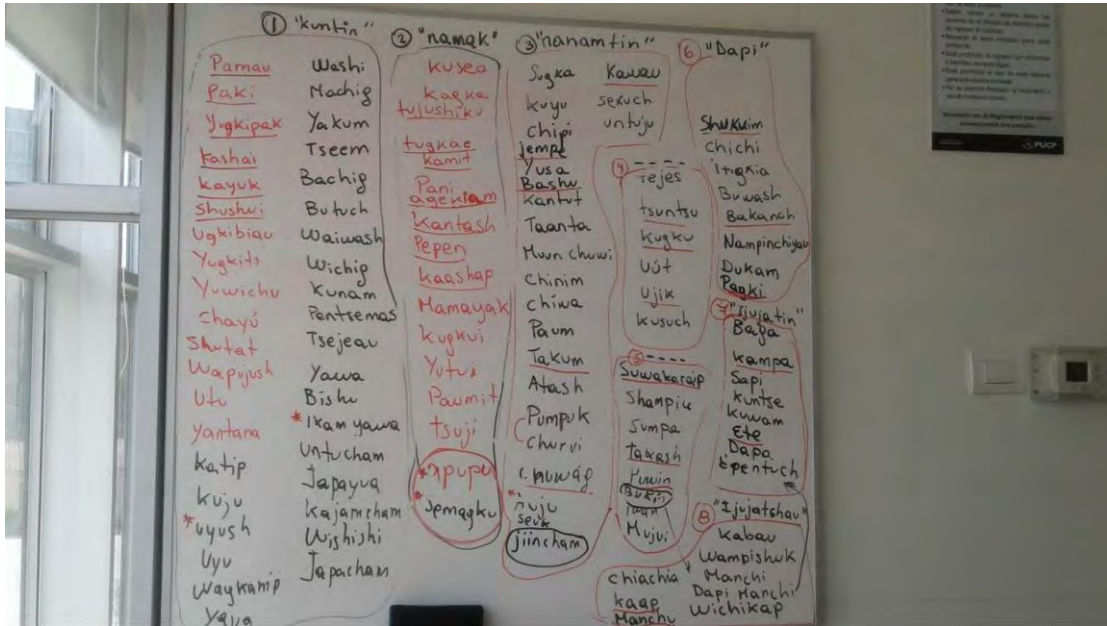 ① "kuntin"
Pamau
Paki
Yugkipak
Kashai
Kayuk
Shushui
Ugkibiau
Yugkits
Yuwichu
Chayú
Shutat
Wapujush
Utu
Yantana
Katip
Kuju
*uyush
Uyu
Waykanip
Yaya
Washi
Machig
Yakum
Tseem
Bachig
Butuch
Waiwash
Wichig
Kunam
Pantsemas
Tsejeau
Yawa
Bishu
*Ikam yawa
Untucham
Japayua
Kajamcham
Wishishi
Japacham
② "namak"
Kusea
Kagka
tujushiku
tugkae
kamit
Pani
ageklam
Kantash
Pepen
kaashap
Mamayak
kugkui
Yutui
Paumit
tsuji
*Apupu
*Jemagku
③ "nanamtin"
Sugka
kuyu
Chipi
jempe
Yusa
Bashu
Kantut
Taanta
Muun chuwi
Chinim
Chiwa
Paum
Takum
Atash
Pumpuk
Churui
Chuwag
jiincham
Kawau
sekuch
untuju
④ ----
Tejes
tsuntsu
Kugku
Uút
Ujik
kusuch
⑤ ----
Suwakaraip
Shampiu
Sumpa
Takash
Puwin
Mujui
⑥ "Dapi"
Shukuim
Chichi
Itigkia
Buwash
Bakanch
Nampinchiyau
Dukam
Pagki
⑦ "Ijujatin"
Baga
kampa
Sapi
Kuntse
Kuwam
Ete
Dapa
Epentuch
⑧ "Ijujatshau"
Kabau
Wampishuk
Manchi
Dapi Manchi
Wichikap
chiachia
kaap
Manchu
PUCP